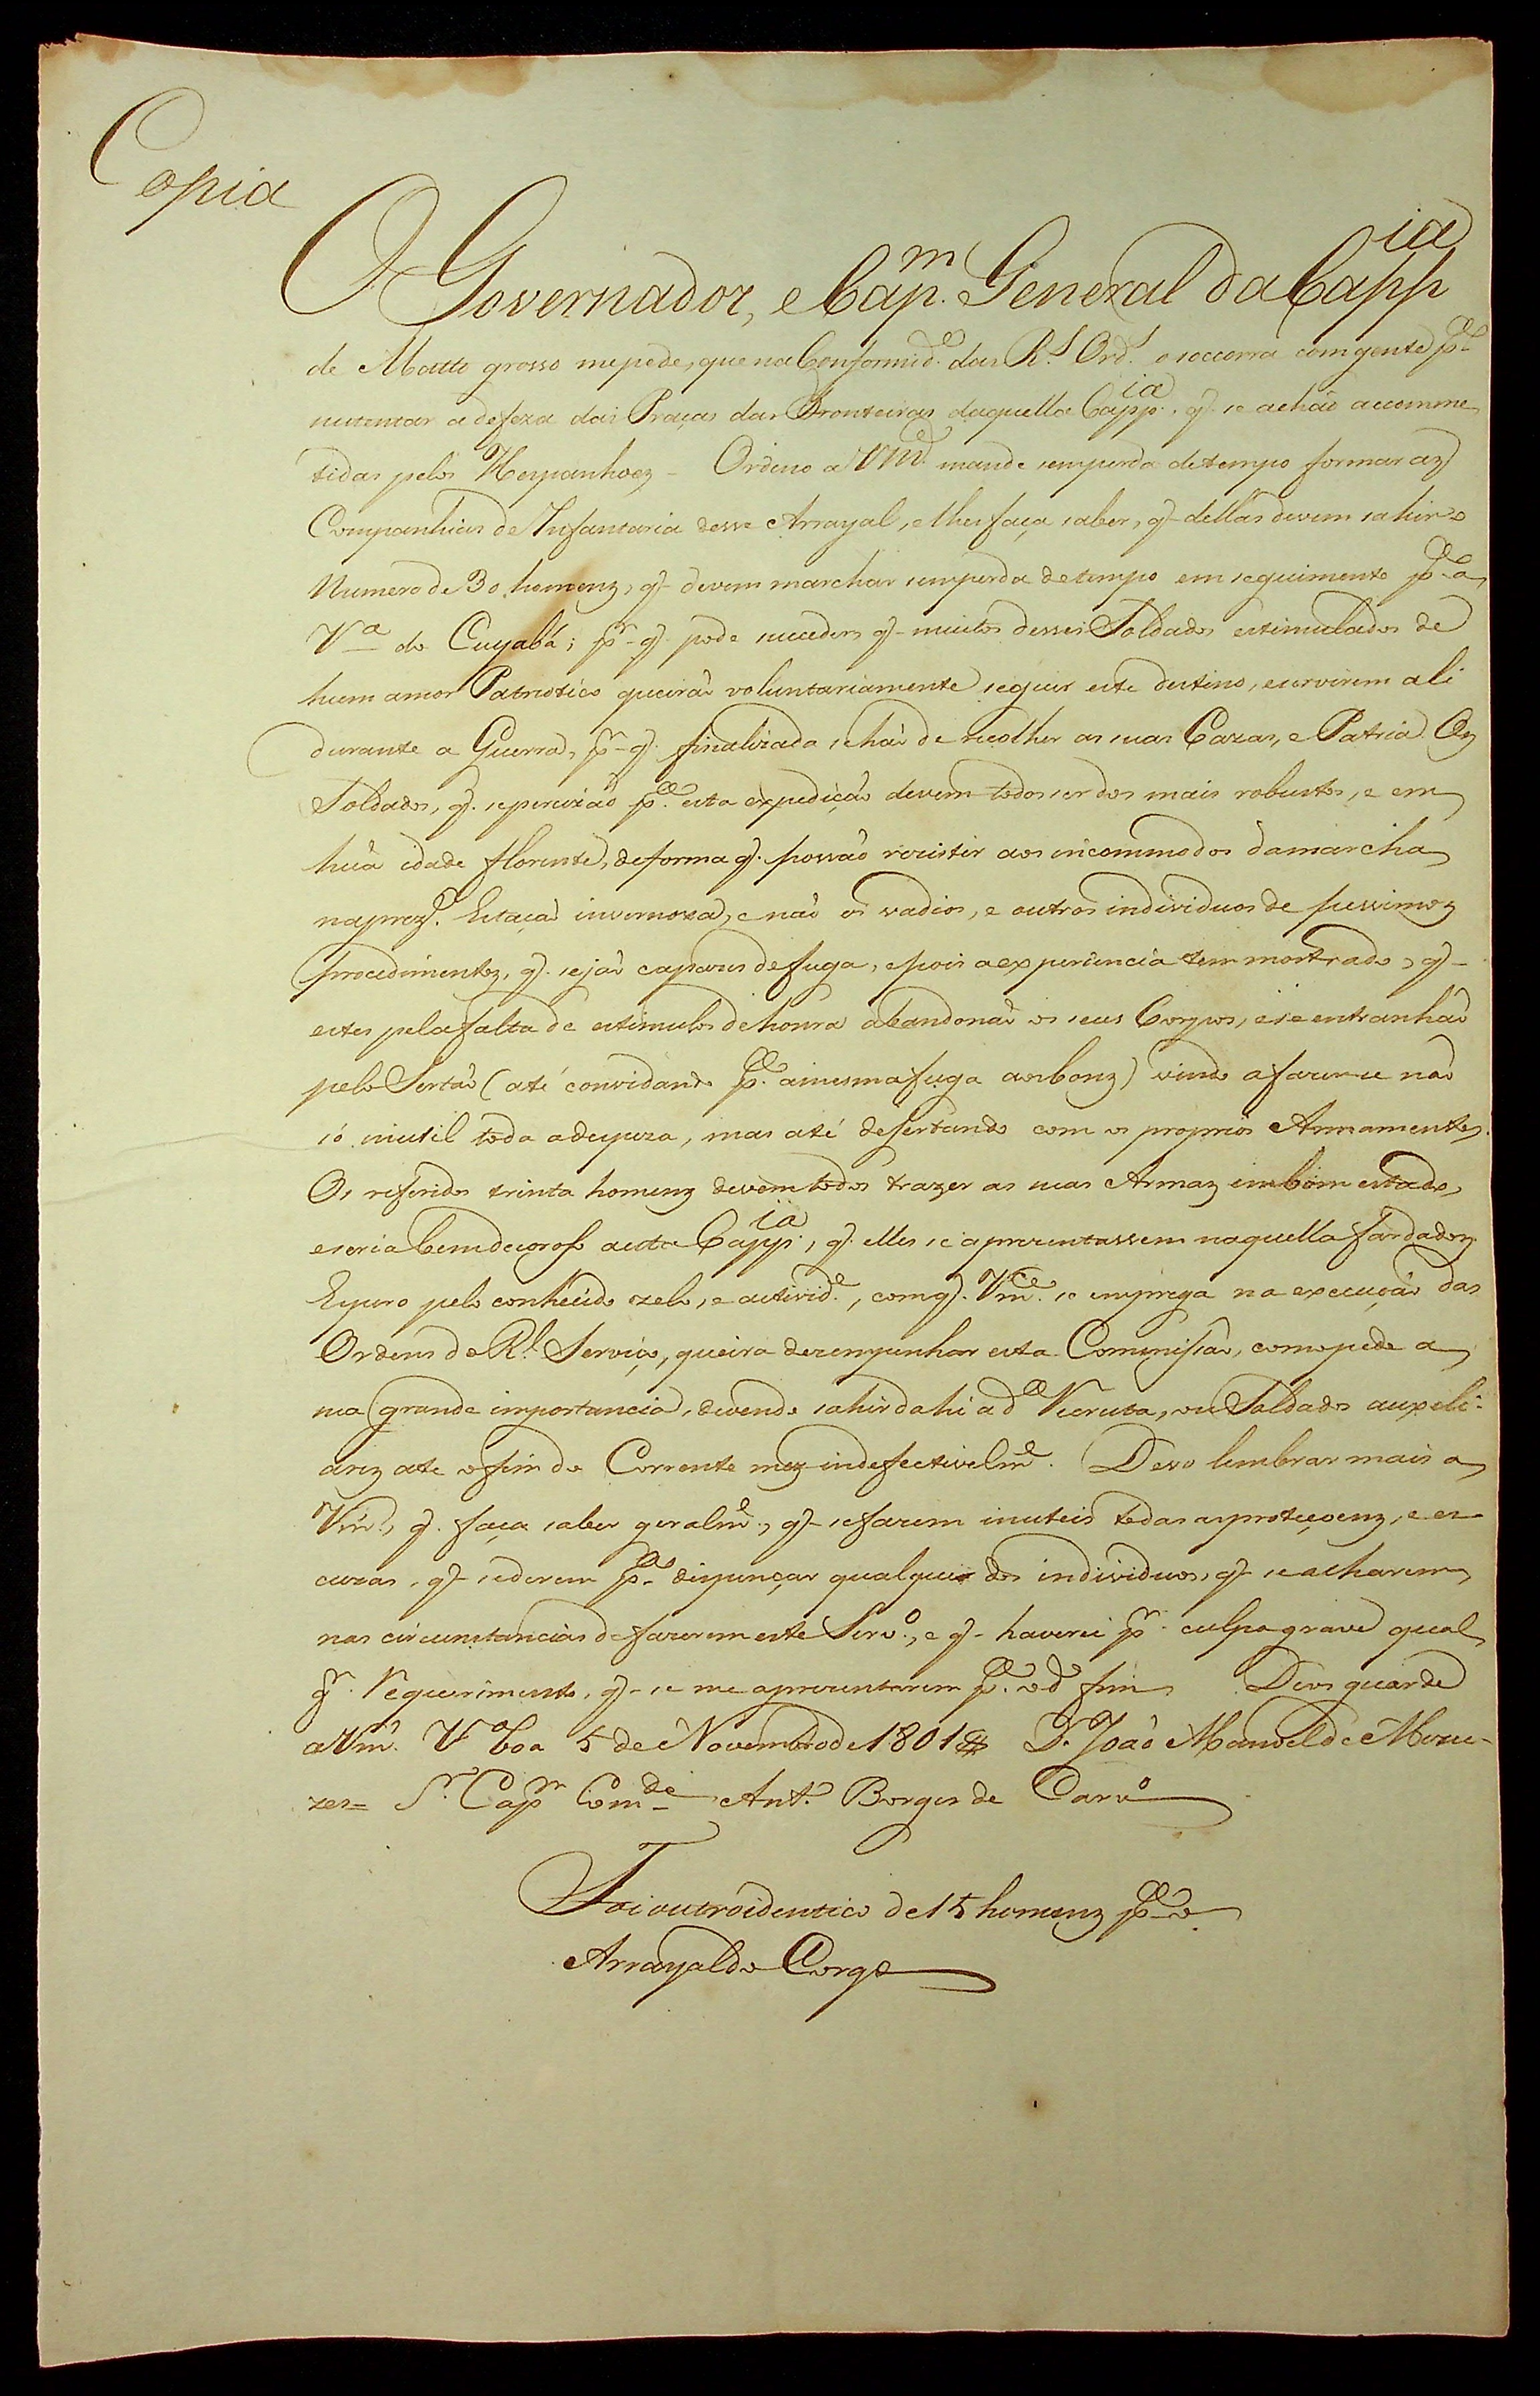 Copia
O Governador, e Capm. General da Cappia
de Matto grosso me pede, que na Conformide. das Rs. Ords. o soccorra com gente pa.
sustentar a defeza das Praças das Fronteiras daquella Cappia. q. se achão accomme
tidas pelos Hespanhoez - Ordeno a Vmce. mande sem perda de tempo formar az
Companhias de Infantaria desse Arrayal, e lhes faça saber, q. dellas devem sahir o
Numero de 30 homenz, q. devem marchar sem perda de tempo em seguimento pa. a
Va. do Cuyabá; pr. q. pode suceder q. muitos desses Soldados estimulados de
hum amor Patriotico queirão voluntariamente seguir este destino, e servirem ali
durante a Guerra, pr. q. finalizada se hão de recolher as suas Cazas, e Patria. Oz
Soldados, q. se percizão pa. esta expedição devem todos ser dos mais robustos, e em
huã idade florente, de forma q. possão rezistir aos incommodos da marcha
na prezte. Estação invernoza, e não os vadios, e outros individuos de pessimoz
procedimentoz, q. sejão capazes de fuga, e pois a experiencia tem mostrado, q.
estes pela falta de estimulos de honra abandonão os seus Corpos, e se entranhão
pelo Sertão (até convidando pa. a mesma fuga aos bonz) vindo a fazer-se não
só inutil toda a despeza, mas até desertando com os proprios Armamentoz.
Os referidos trinta homenz devem todos trazer as suas Armaz em bom estado,
e seria bem decoroso a esta Cappia., q. elles se aprezentassem naquella fardadoz.
Espero pelo conhecido zelo, e activide., com q. Vmce. se emprega na execução das
Ordens do Rl. Serviço, queira dezempenhar esta Commissão, como pede a
sua grande importancia, devendo sahir dahi a da. Recruta, ou Soldados auxili-
arez ate o fim do Corrente mez indefectivelme. Devo lembrar mais a
Vmce., q. faça saber geralme., q. se fazem inuteis todas as proteçoenz, e es-
cuzas, q. se derem pa. dispençar qualquer dos individuos, q. se acharem
nas circunstancias de fazerem este Servo., e q. haverei pr. culpa grave qual
qr. Requerimento, q. se me aprezentarem pa. o do. fim Deos guarde
a Vmce. Va. Boa 5 de Novembro de 1801 D. João Manoel de Mene-
zes = Sr. Capm. Comde. Anto. Borges de Carvo.
Foi outro identico de 15 homenz pa. o
Arrayal do Corgo